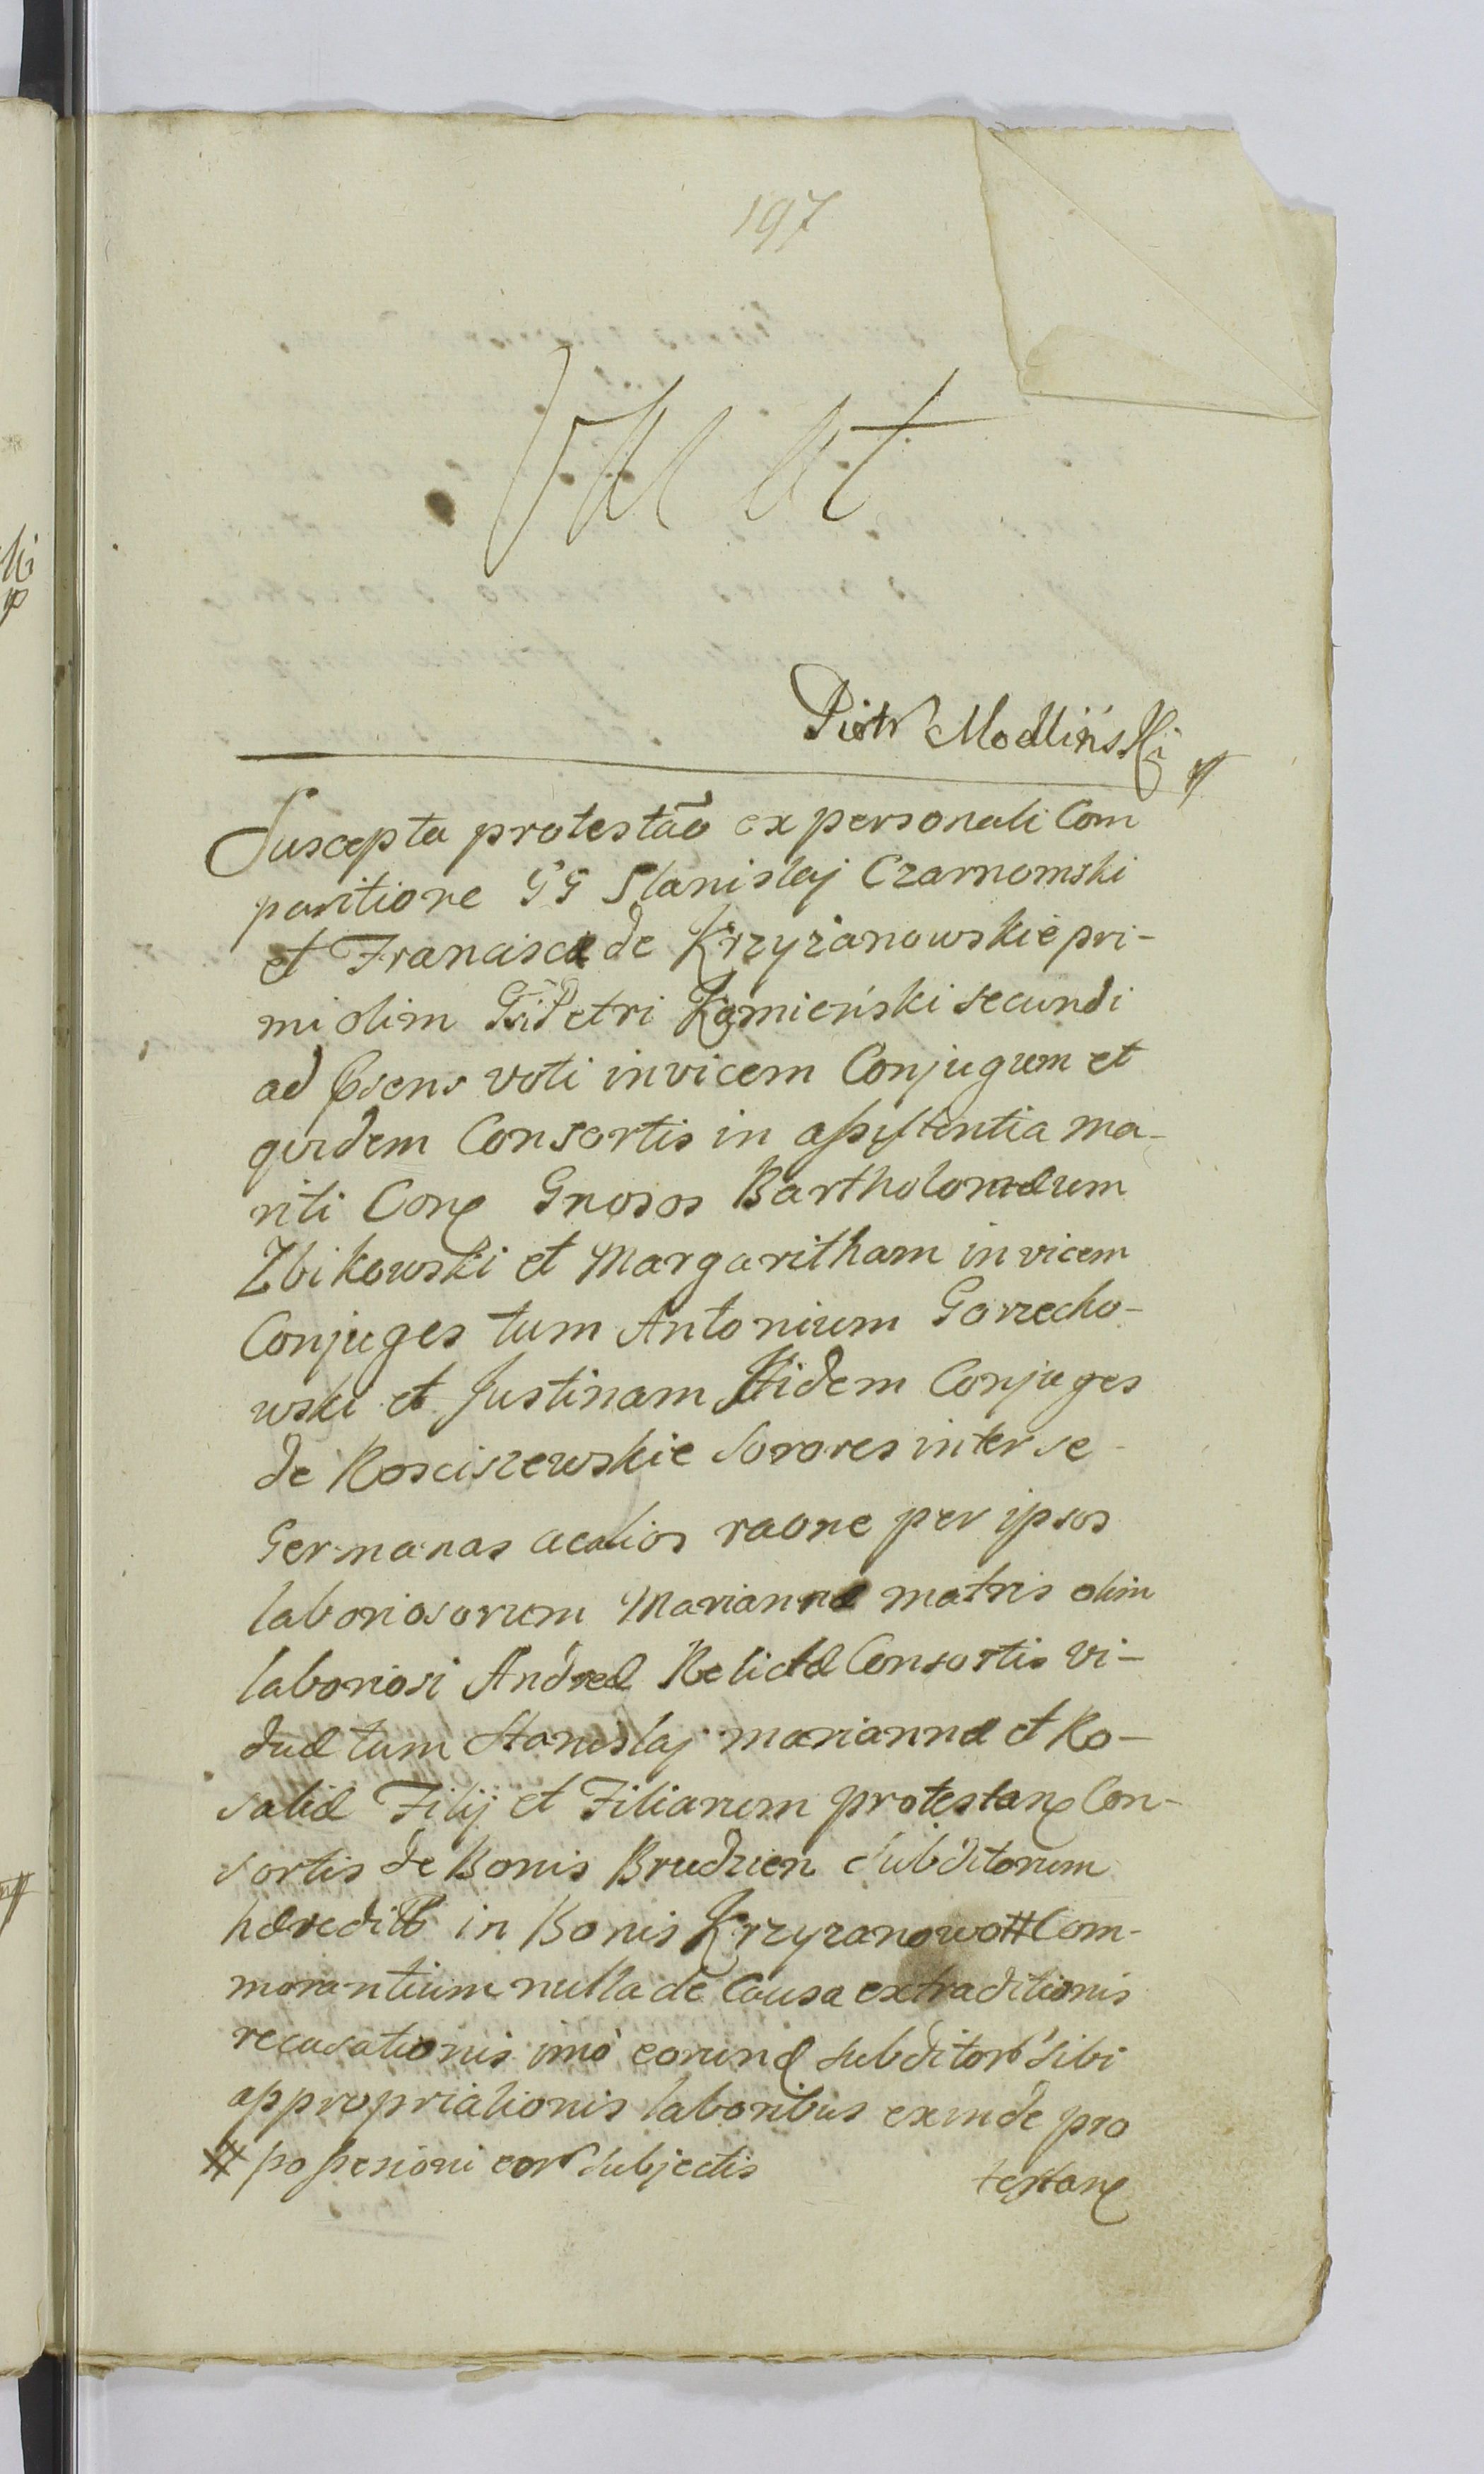 197
Vacat
Piotr Modliński
Suscepta protestãõ ex personali Com
paritione GG Stanislaj Czarnomski
et Franciscæ de Krzyżanowskie pri-
mi olim Gsi Petri Kamieński secundi
ad psens voti invicem Conjugum et
quidem Consortis in assistentia ma-
riti Con Gnosos Bartholomæum
Zbikowski et Margaritham invicem
Conjuges tum Antonium Gorzecho-
wski et Justinam Itidem Conjuges
de Rosciszewskie Sorores inter se
Germanas ac alios raone per ipsos
laboriosorum Mariannæ matris olim
laboriosi Andreæ Relictæ Consortis Vi-
duæ tum Stanislaj Mariannæ et Ro-
saliæ Filij et Filiarum protestan Con-
sortis de Bonis Brudzen Subditorum
hæredit in Bonis Krzyzanowo # Com-
morantium nulla de Causa extraditionis
recusationis imo eorund subditor sibi
appropriationis laboribus exinde pro
# possesioni eor Subjectis
testan